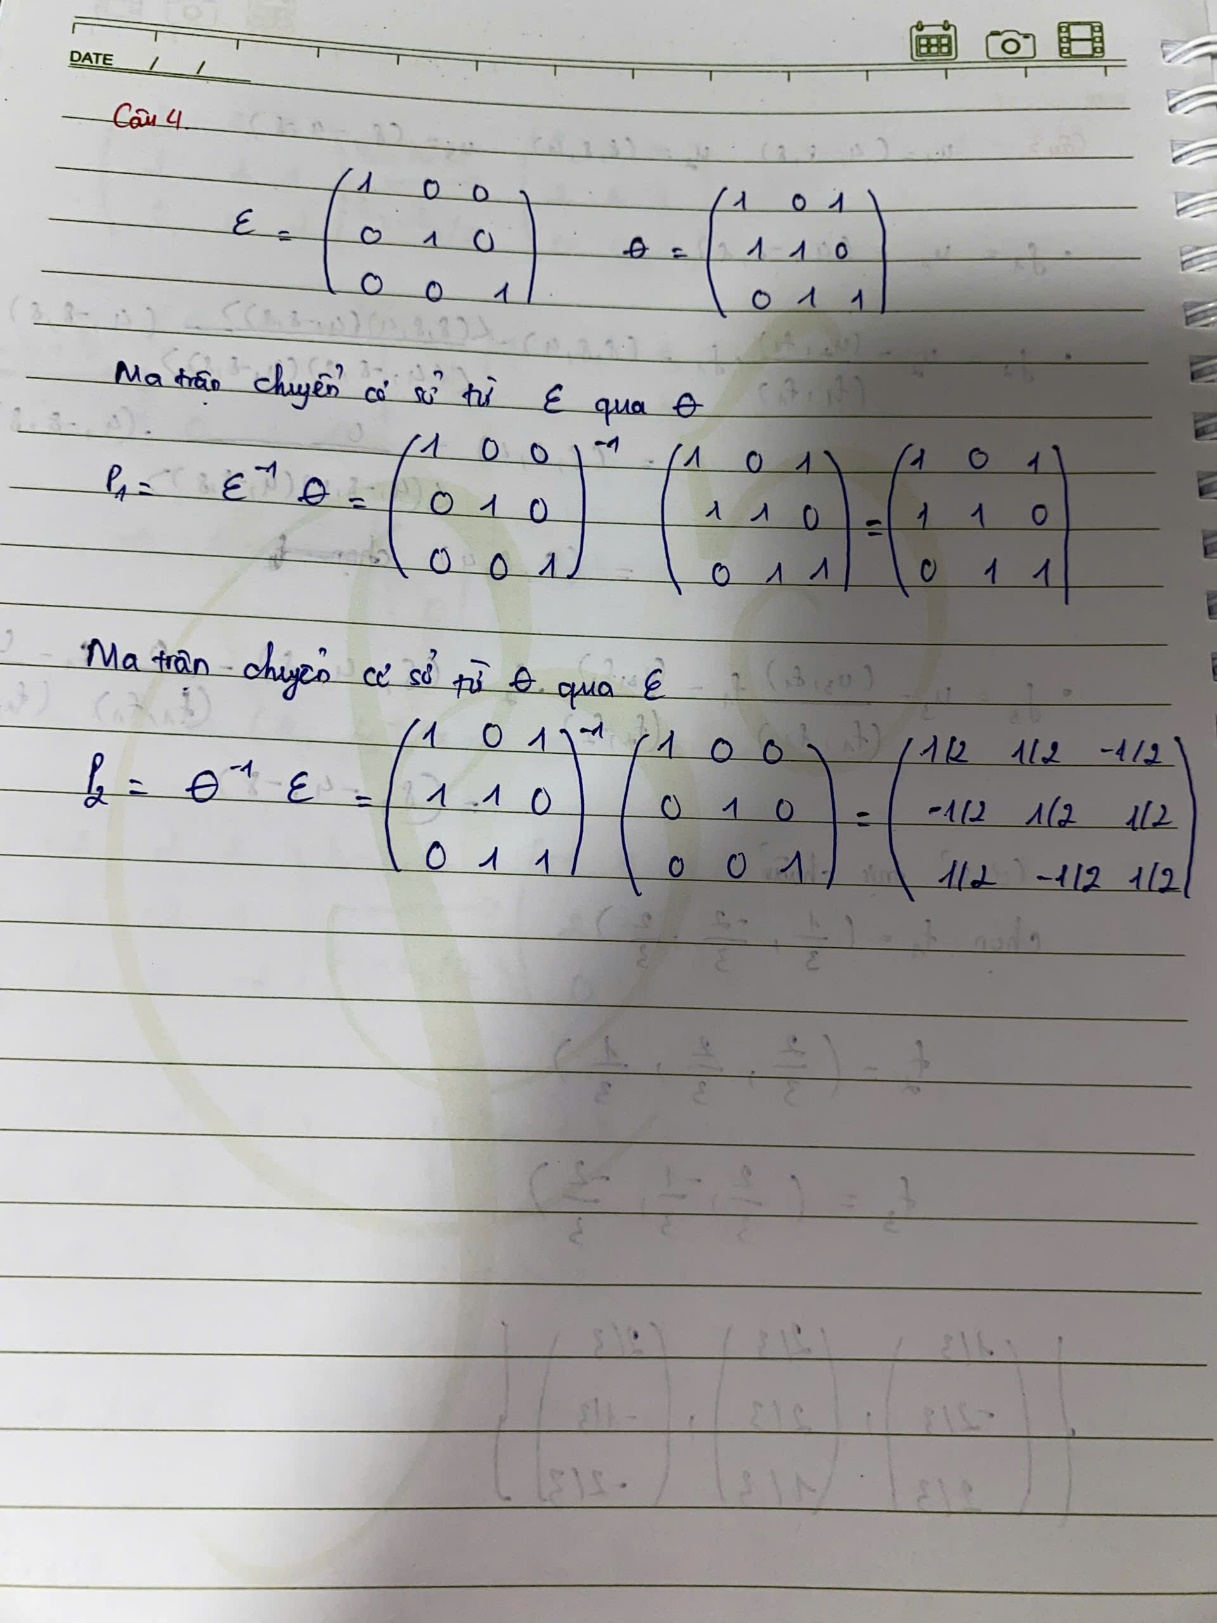 DATE / /
Câu 4.
ε = (1 0 0 θ = (1 0 1
0 1 0 1 1 0
0 0 1) 0 1 1)
Ma trận chuyển cơ sở từ ε qua θ
P₁ = ε⁻¹ θ = (1 0 0)⁻¹ (1 0 1) = (1 0 1)
0 1 0 1 1 0 1 1 0
0 0 1 0 1 1 0 1 1
Ma trận chuyển cơ sở từ θ qua ε
P₂ = θ⁻¹ ε = (1 0 1)⁻¹ (1 0 0) = (1/2 1/2 -1/2)
1 1 0 0 1 0 -1/2 1/2 1/2
0 1 1 0 0 1 1/2 -1/2 1/2